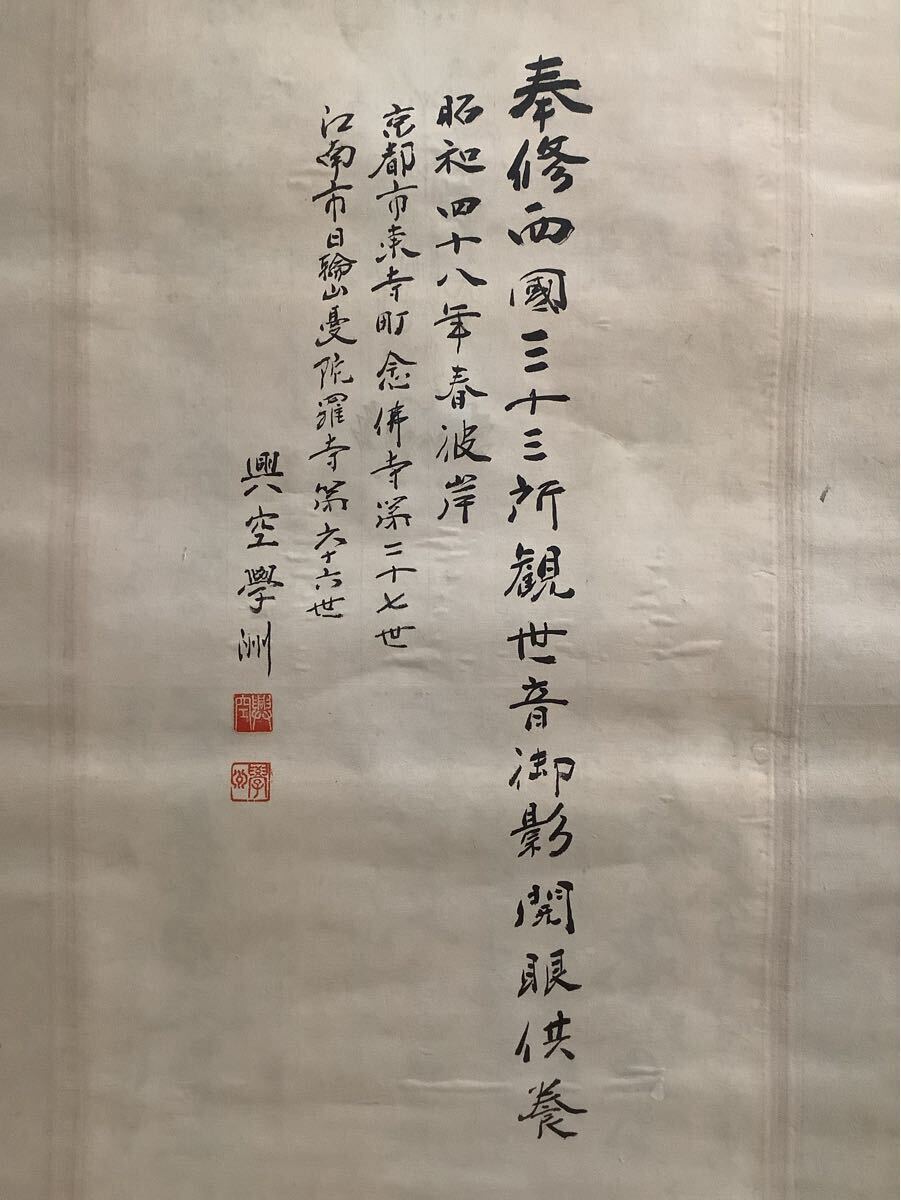 奉修西國三十三所観世音御影開眼供養
昭和四十八年春彼岸
京都市東寺町念佛寺第二十七世
江南市日輪山曼陀羅寺第六十六世
興空學洲
興空
學